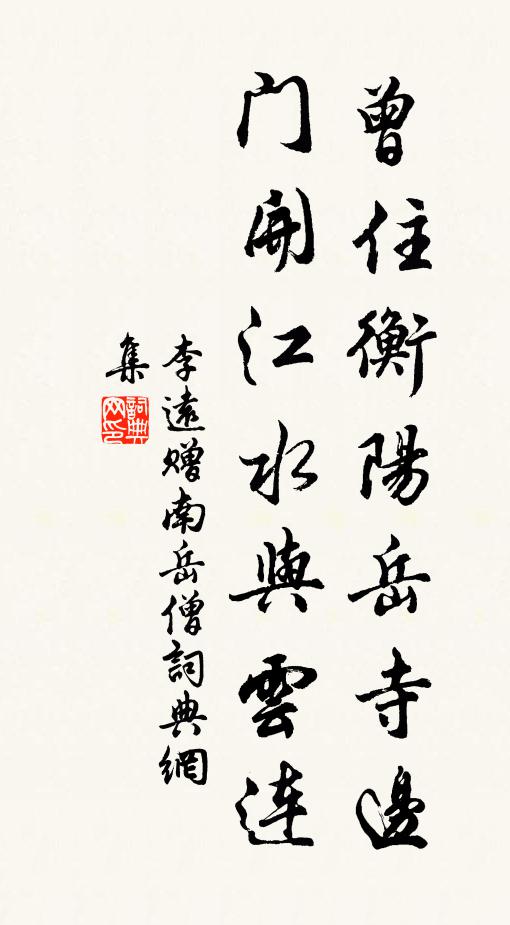 曾住衡陽岳寺邊
門開江水與雲連
李遠贈南岳僧詞典網
集
詞典網印